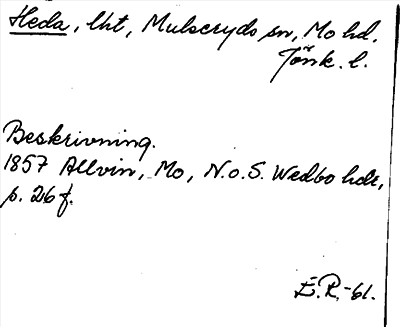 Heda, lht, Mulseryds sn, Mo hd.
Jönk. l.
Beskrivning.
1857 Allvin, Mo, N.o.S. Wedbo hdr,
s. 26 f.
E.R.-61.